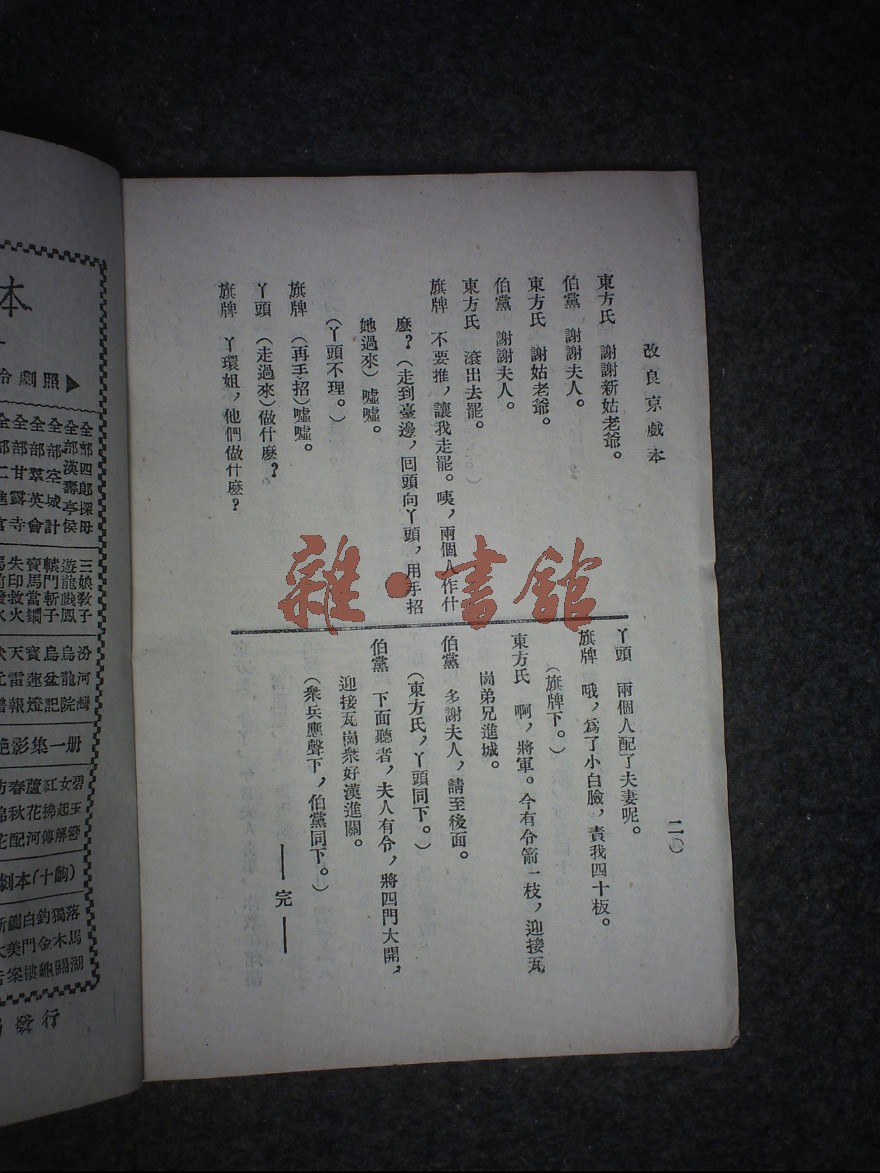 改良京戲本
東方氏 謝謝新姑老爺。
伯黨 謝謝夫人。
東方氏 謝姑老爺。
伯黨 謝謝夫人。
東方氏 滾出去罷。
旗牌 不要推，讓我走罷。咦，兩個人作什
麽？（走到臺邊，回頭向丫頭，用手招
她過來）噓噓。
（丫頭不理。）
旗牌 （再手招）噓噓。
丫頭 （走過來）做什麽？
旗牌 丫環姐，他們做什麽？
丫頭 兩個人配了夫妻呢。
旗牌 哦，爲了小白臉，責我四十板。
（旗牌下。）
東方氏 啊，將軍。今有令箭一枝，迎接瓦
崗弟兄進城。
伯黨 多謝夫人，請至後面。
（東方氏，丫頭同下。）
伯黨 下面聽者，夫人有令，將四門大開，
迎接瓦崗衆好漢進關。
（衆兵應聲下，伯黨同下。）
——完——
二〇
雜·書館
本
劇照▶
全部四郎探母
全部漢壽亭侯
全部空城計
全部羣英會
全部甘露寺
三娘敎子
遊龍戲鳳
轅門斬子
賣馬當鐧
失印救火
汾河灣
烏龍院
烏盆記
寶蓮燈
天雷報
影集一册
碧玉
女起解
紅拂傳
蘆花河
春秋配
劇本（十齣）
落馬湖
獨木關
釣金龜
白門樓
鍘美案
發行